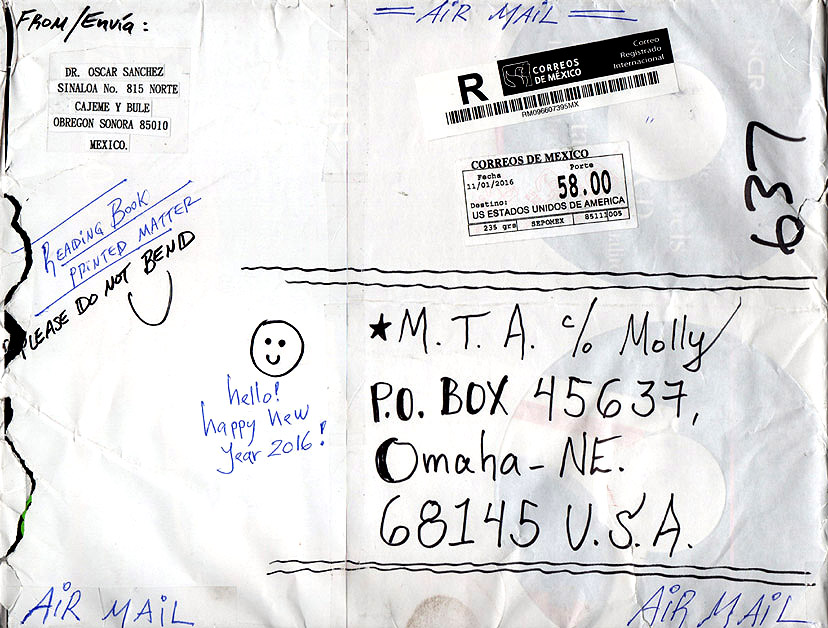 FROM/Envía:
DR. OSCAR SANCHEZ
SINALOA No. 815 NORTE
CAJEME Y BULE
OBREGON SONORA 85010
MEXICO.
AIR MAIL
R
CORREOS
DE MÉXICO
Correo
Registrado
Internacional
RM096607395MX
CORREOS DE MEXICO
Fecha
Porte
11/01/2016
58.00
Destino:
US ESTADOS UNIDOS DE AMERICA
235 grs
SEPOMEX
85113005
637
READING BOOK
PRINTED MATTER
PLEASE DO NOT BEND
hello!
happy new
year 2016!
★M. T. A. c/o Molly
P.O. BOX 45637,
Omaha-NE.
68145 U.S.A.
AIR MAIL
AIR MAIL